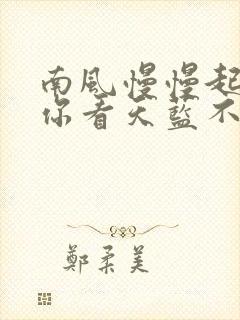 南風慢慢起
你看天藍不
鄭柔美